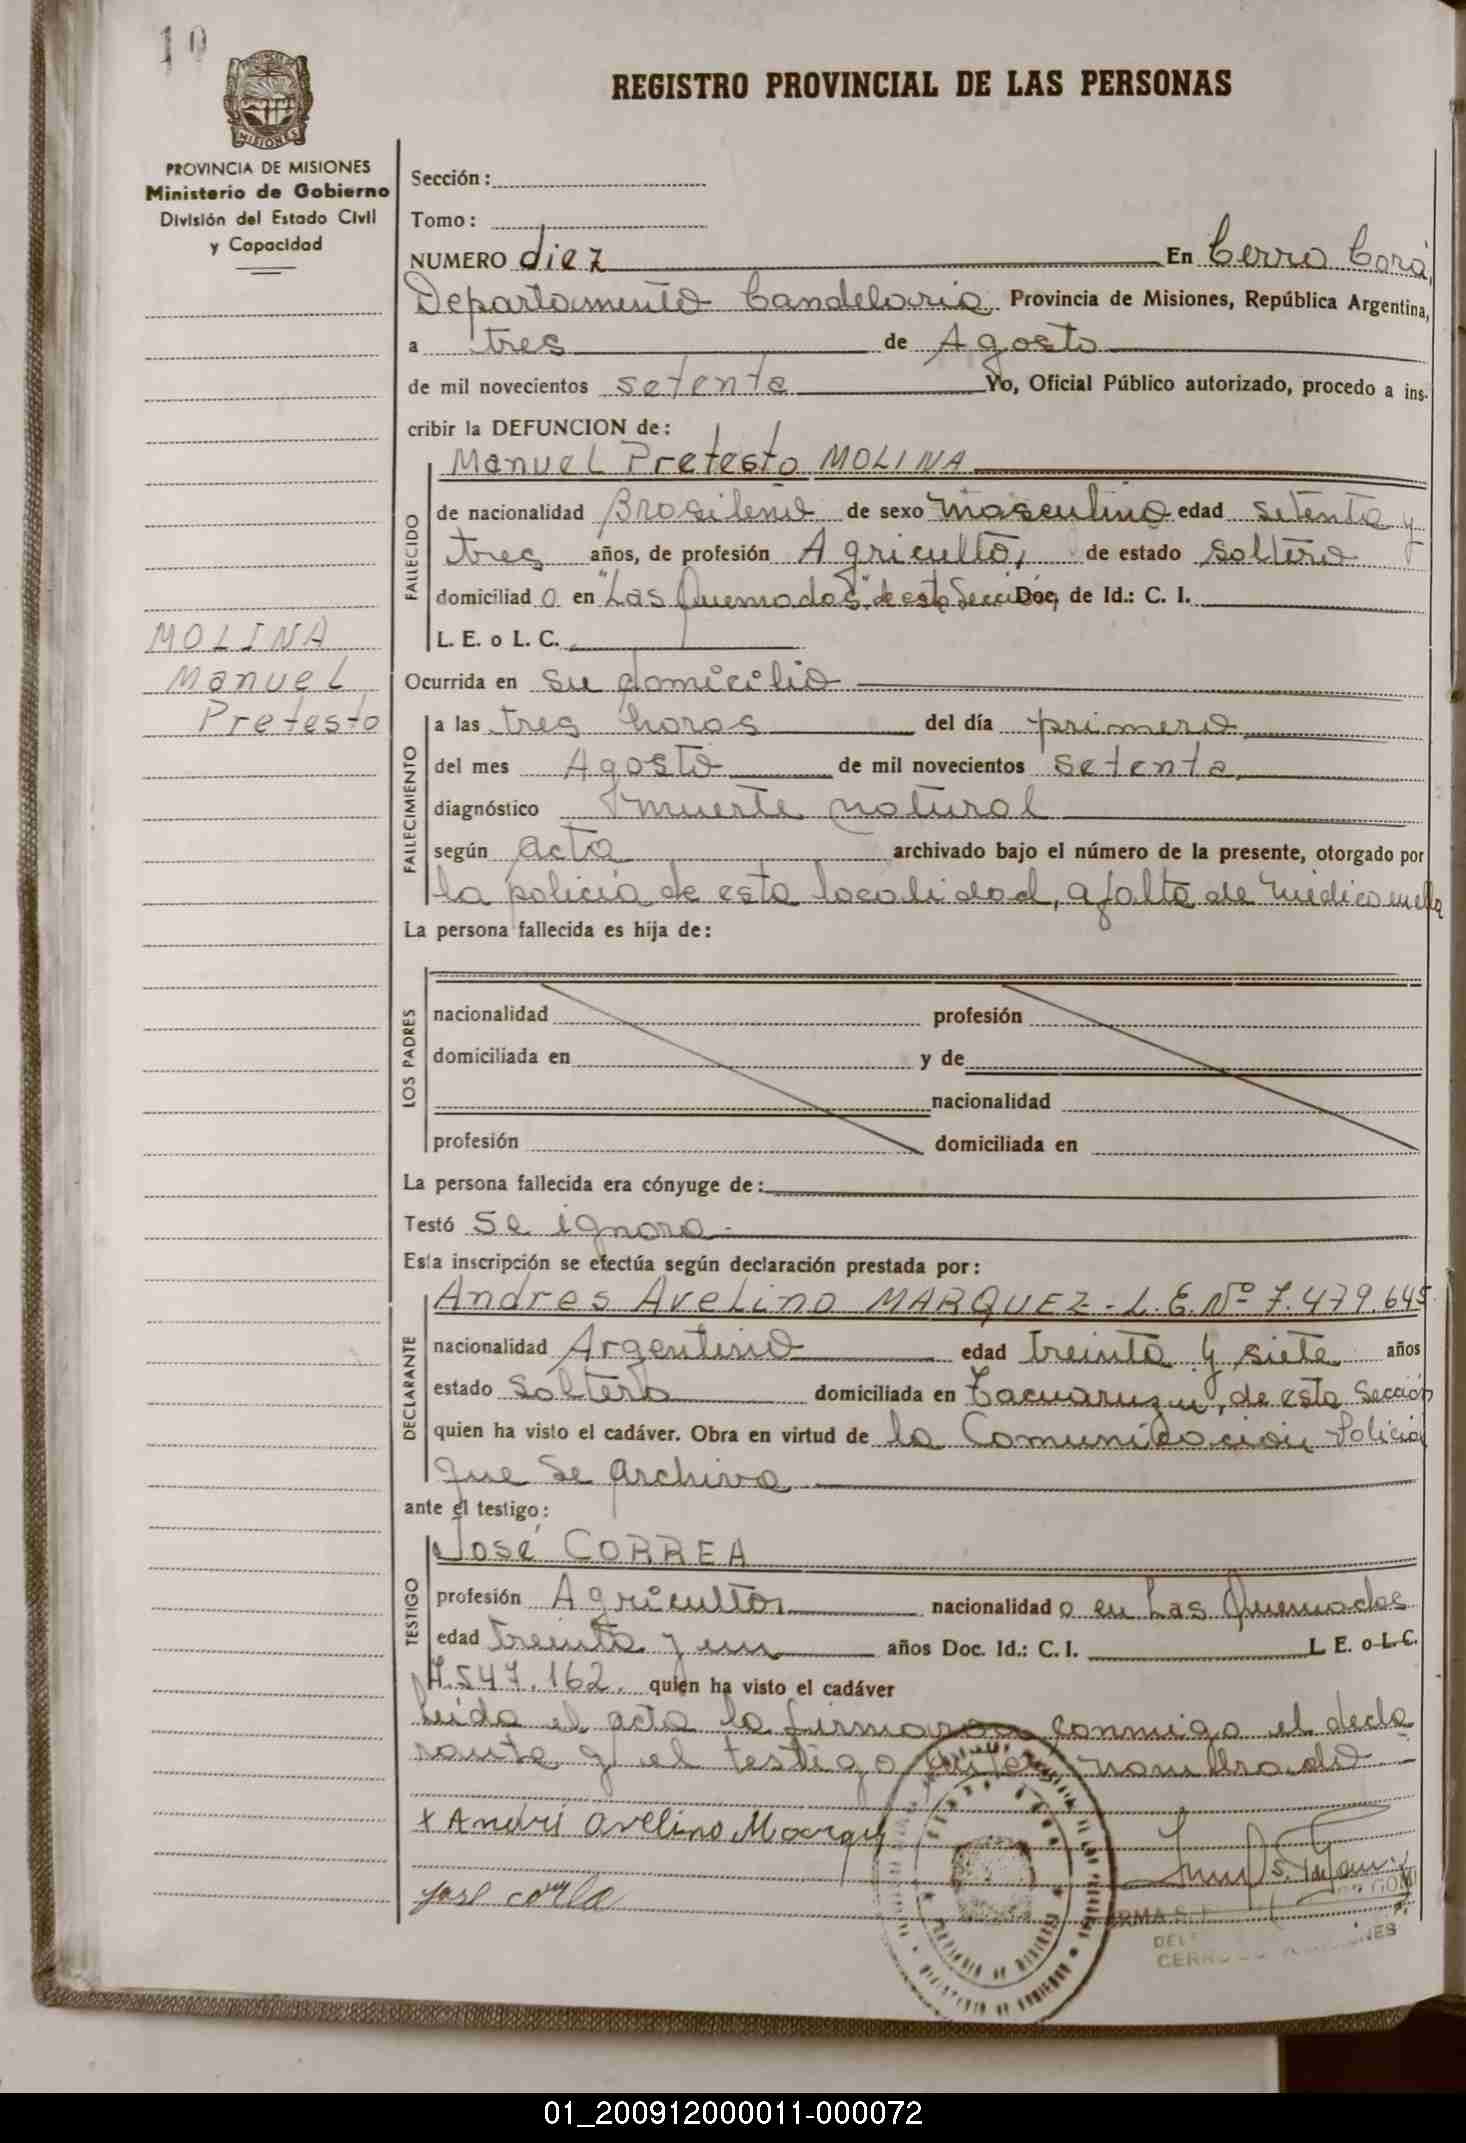 10
REGISTRO PROVINCIAL DE LAS PERSONAS
MISIONES
PROVINCIA DE MISIONES
Ministerio de Gobierno
División del Estado Civil
y Capacidad
Sección:
Tomo:
NUMERO diez En Cerro Corá,
Departamento Candelaria Provincia de Misiones, República Argentina,
a tres de Agosto
de mil novecientos setenta Yo, Oficial Público autorizado, procedo a ins-
cribir la DEFUNCION de:
Manuel Pretesto MOLINA
FALLECIDO
de nacionalidad Brasileño de sexo masculino edad setenta y
tres años, de profesión Agricultor, de estado soltero
domiciliad o en "Las Quemadas" de esta Sección, Doc. de Id.: C. I.
L. E. o L. C.
MOLINA
Manuel
Pretesto
Ocurrida en su domicilio
FALLECIMIENTO
a las tres horas del día primero
del mes Agosto de mil novecientos setenta
diagnóstico muerte natural
según acta archivado bajo el número de la presente, otorgado por
la policia de esta localidad, a falta de médico en ella
La persona fallecida es hija de:
LOS PADRES
nacionalidad profesión
domiciliada en y de
nacionalidad
profesión domiciliada en
La persona fallecida era cónyuge de:
Testó se ignora.
Esta inscripción se efectúa según declaración prestada por:
DECLARANTE
Andres Avelino MARQUEZ - L. E. Nº 7.479.645
nacionalidad Argentino edad treinta y siete años
estado soltero domiciliada en Tacuaruzu, de esta Sección
quien ha visto el cadáver. Obra en virtud de la Comunicación Policial
que se archiva
ante el testigo:
TESTIGO
José CORREA
profesión Agricultor nacionalidad o en Las Quemadas
edad treinta y un años Doc. Id.: C. I. L E. o L. C.
7.547.162. quien ha visto el cadáver
Leida el acta la firmaron conmigo el decla
rante y el testigo antes nombrado
x Andrés Avelino Marquez
José Correa
01_200912000011-000072